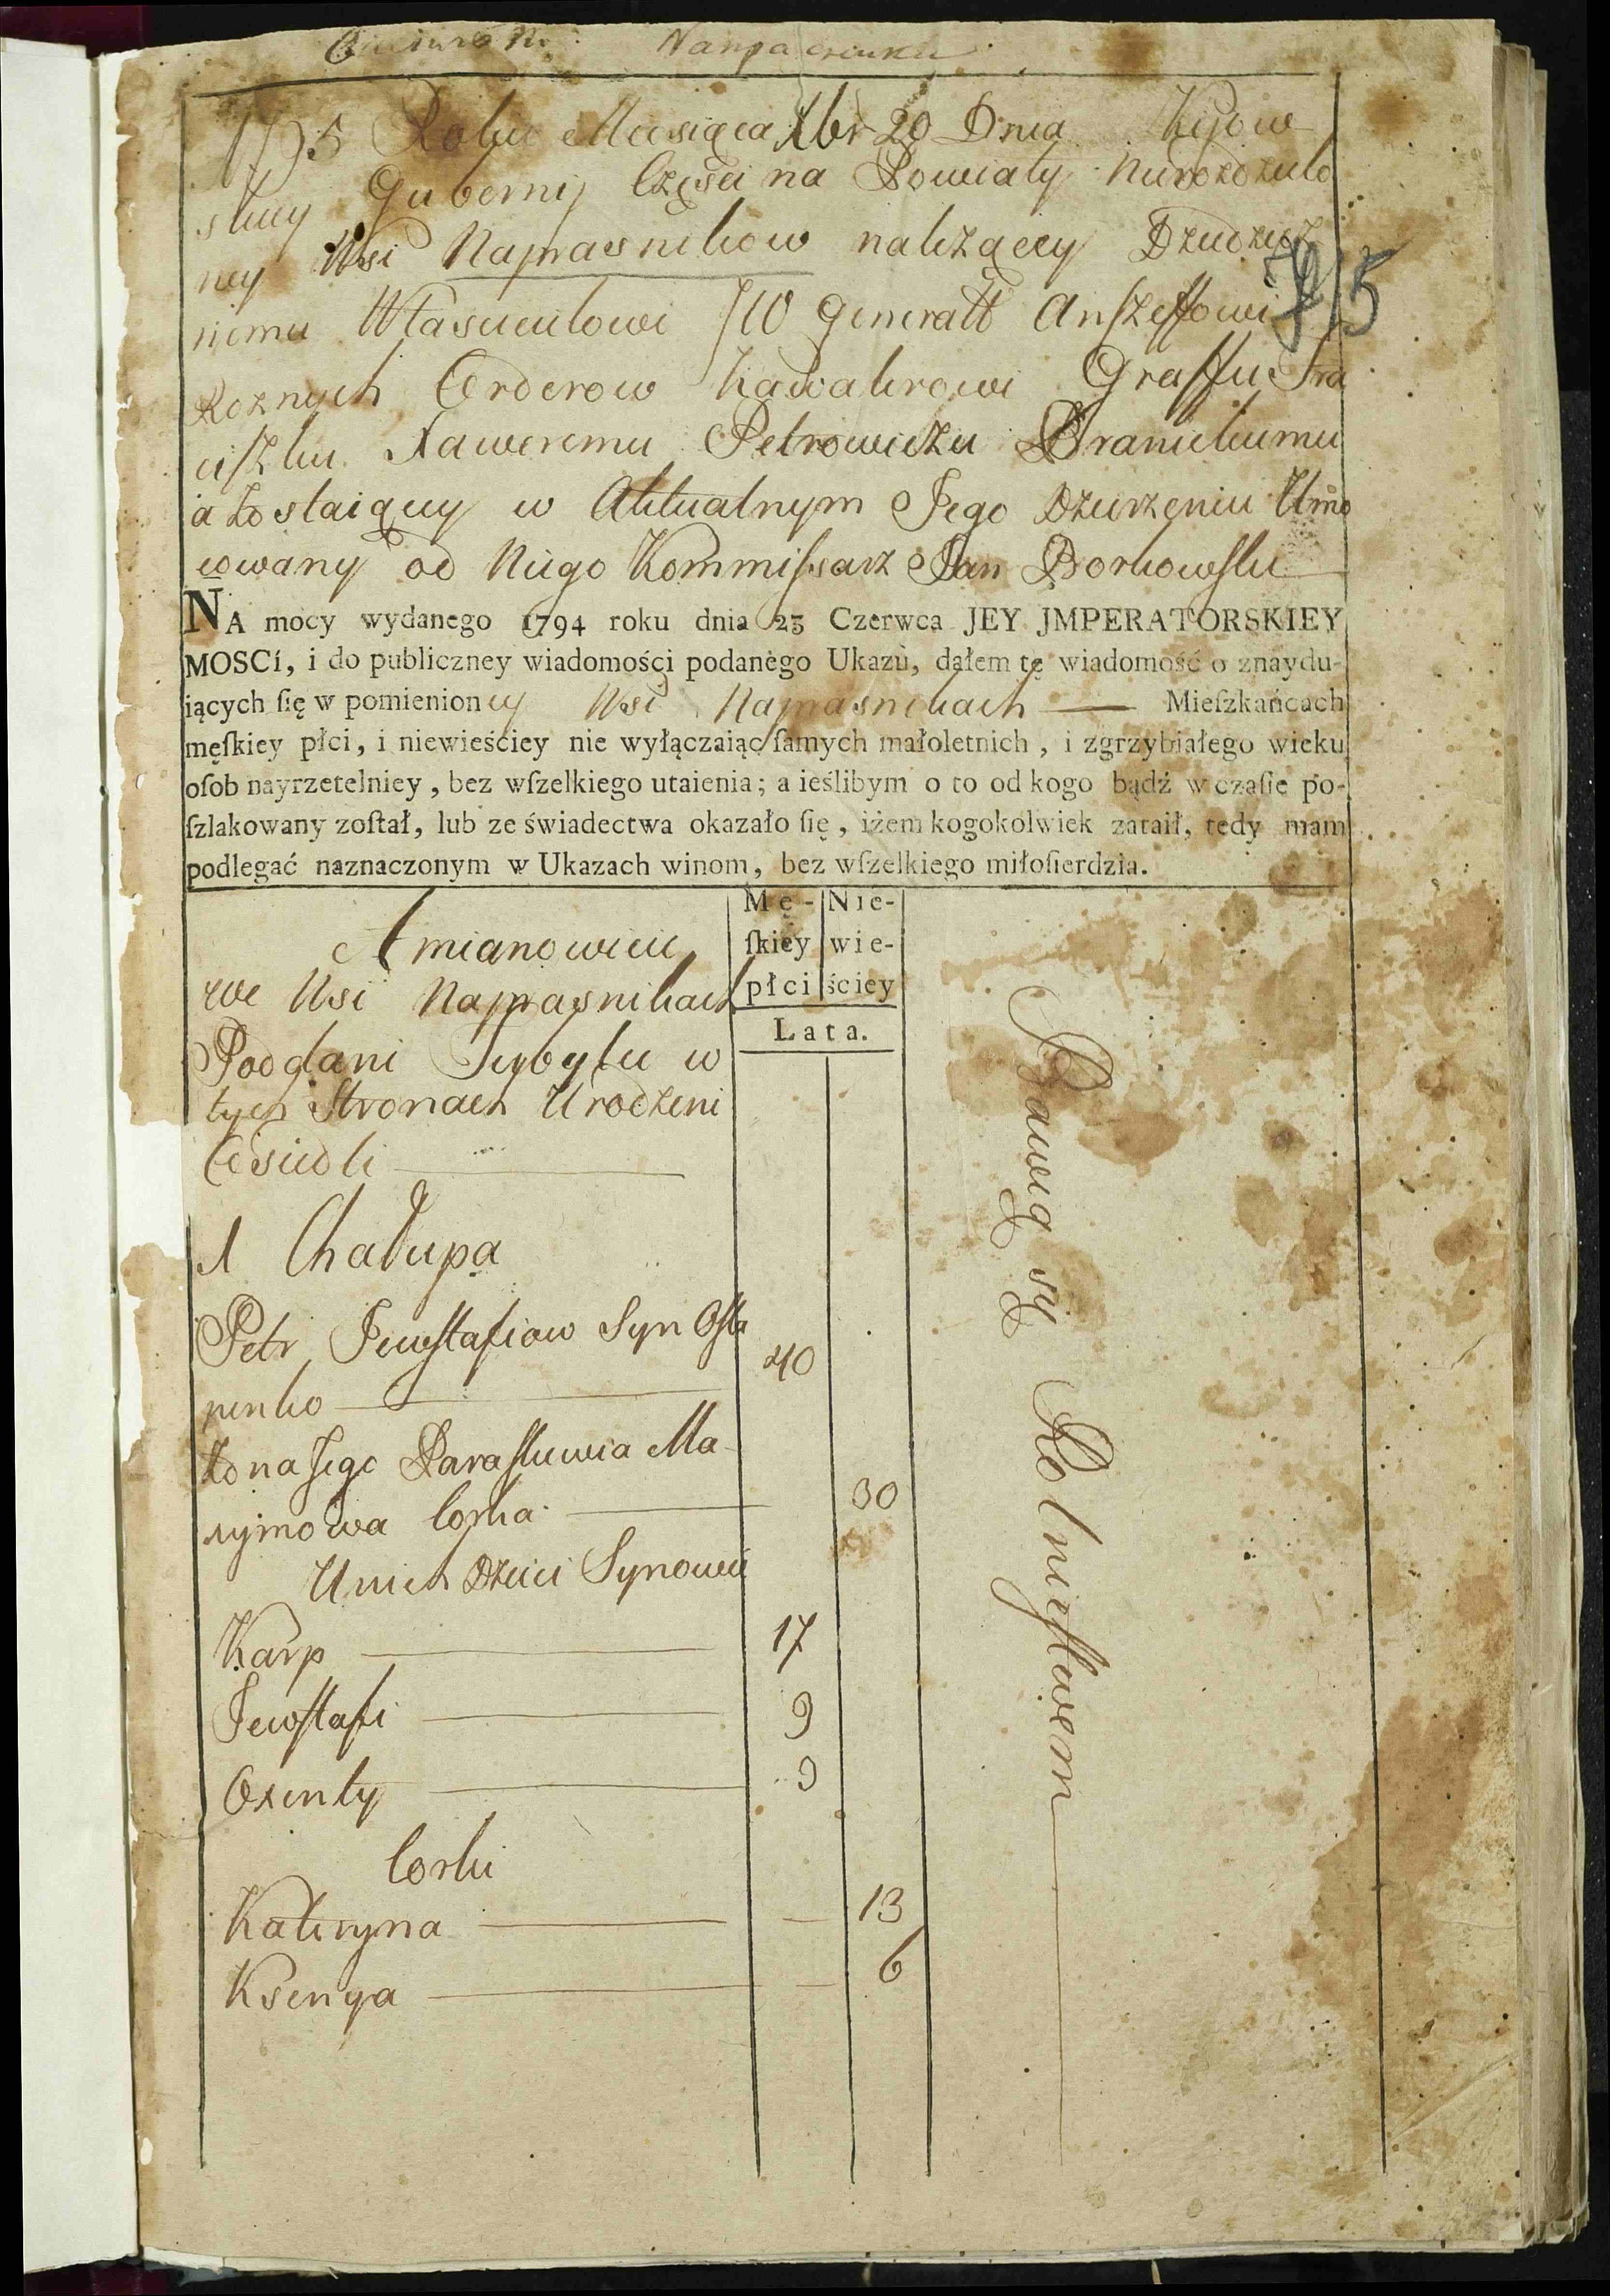 1795 Roku Miesiąca Xbr 20 Dnia Kijow
skiey Gubernij Części na Powiaty Nierozdzielo
ney Wsi Naprasnikow należącey Dziedzicz
nemu Właścicielowi JW Generałł Anszeffowi
Roznych Orderow Kawalerowi Graffu Fra
ciszku Xaweremu Petrowiczu Branickiemu
a zostaiący w Aktualnym Jego Dzierżeniu Umo
cowany od Niego Kommissarz Jan Borkowski
75
NA mocy wydanego 1794 roku dnia 23 Czerwca JEY JMPERATORSKIEY
MOSCí, i do publiczney wiadomości podanego Ukazu, dałem tę wiadomość o znaydu-
iących ſię w pomienioney Wsi Napraśnikach — Mieſzkańcach
męſkiey płci, i niewieściey nie wyłączaiąc ſamych małoletnich, i zgrzybiałego wieku
oſob nayrzetelniey, bez wſzelkiego utaienia; a ieślibym o to od kogo bądź w czaſie po-
ſzlakowany zoſtał, lub ze świadectwa okazało ſię, iżem kogokolwiek zataił, tedy mam
podlegać naznaczonym w Ukazach winom, bez wſzelkiego miłoſierdzia.
Mę- Nie-
ſkiey wie-
płci ściey
Lata.
A mianowicie
we Wsi Naprasnikach
Poddani Seybylu w
tych Stronach Urodzeni
Osiedli
1 Chałupa
Petr Jewstafiow Syn Osta
penko 40
Żona Jego Paraskiewia Ma-
xymowa Corka 30
U nich Dzieci Synowie
Karp 17
Jewstafi 9
Oxenty 3
Corki
Kateryna 13
Ksenya 6
Bawią się Rolnictwem